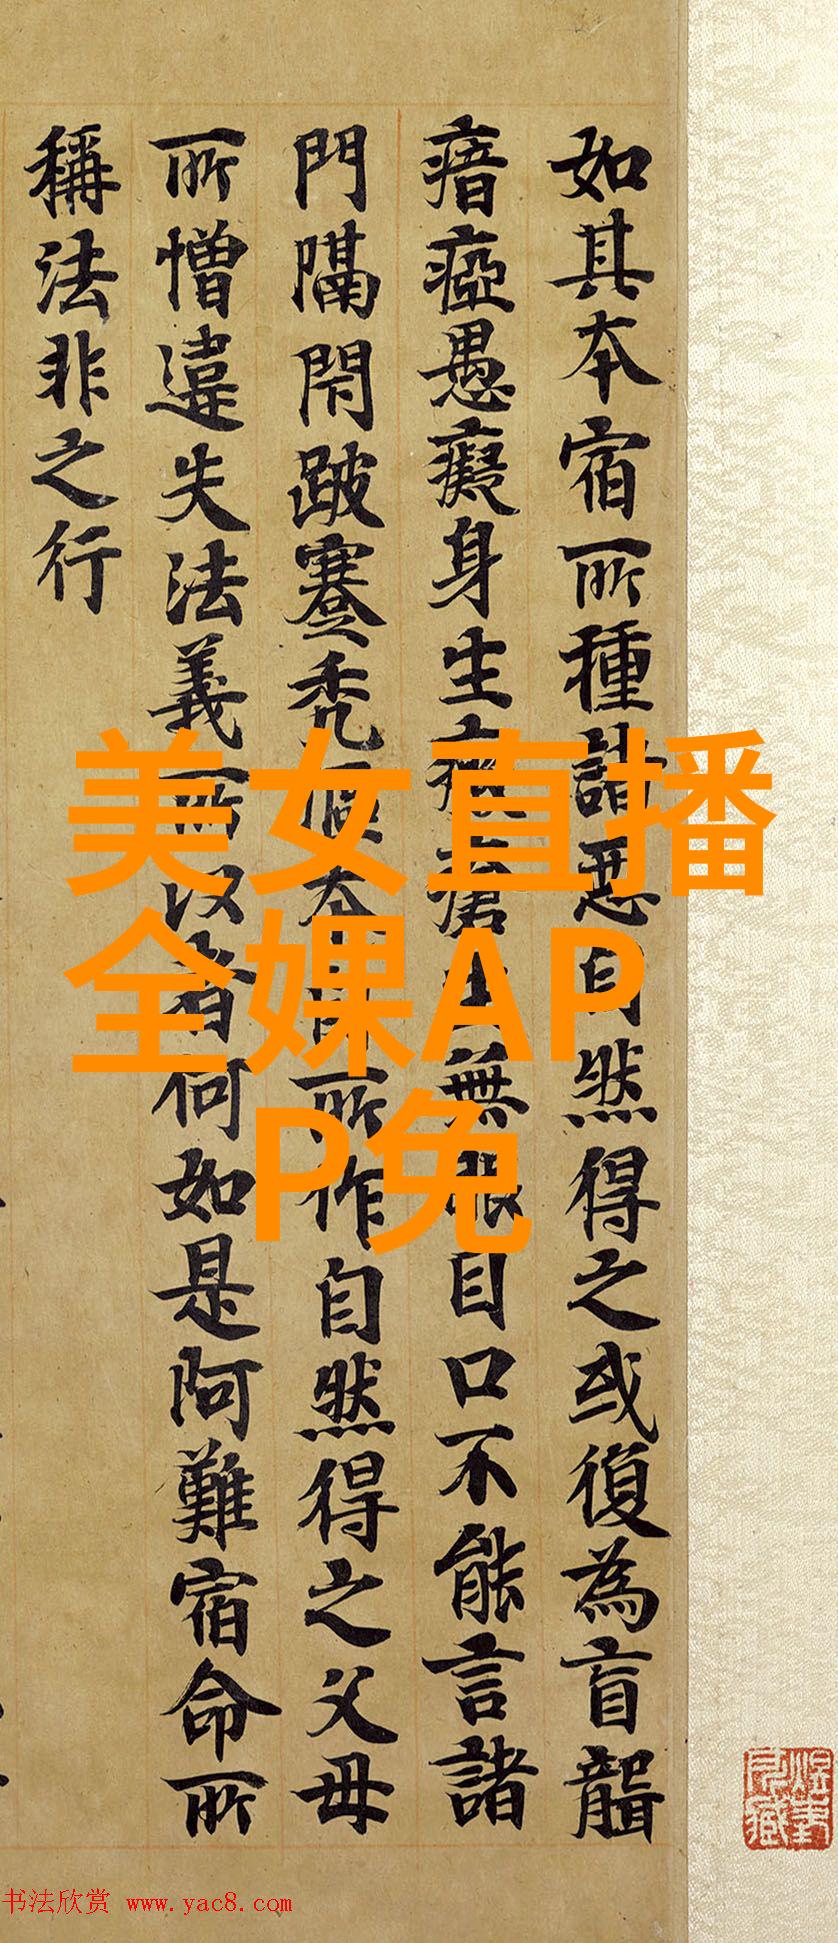 如其本宿所種諸惡自然得之或復為盲聾
瘖瘂愚癡身生瘡無眼目口不能言諸
門隔閇跛蹇禿本所作自然得之父母
所憎違失法義所以者何如是阿難宿命所
稱法非之行
美女直播
全婐AP
P免
书法欣赏 www.yac8.com